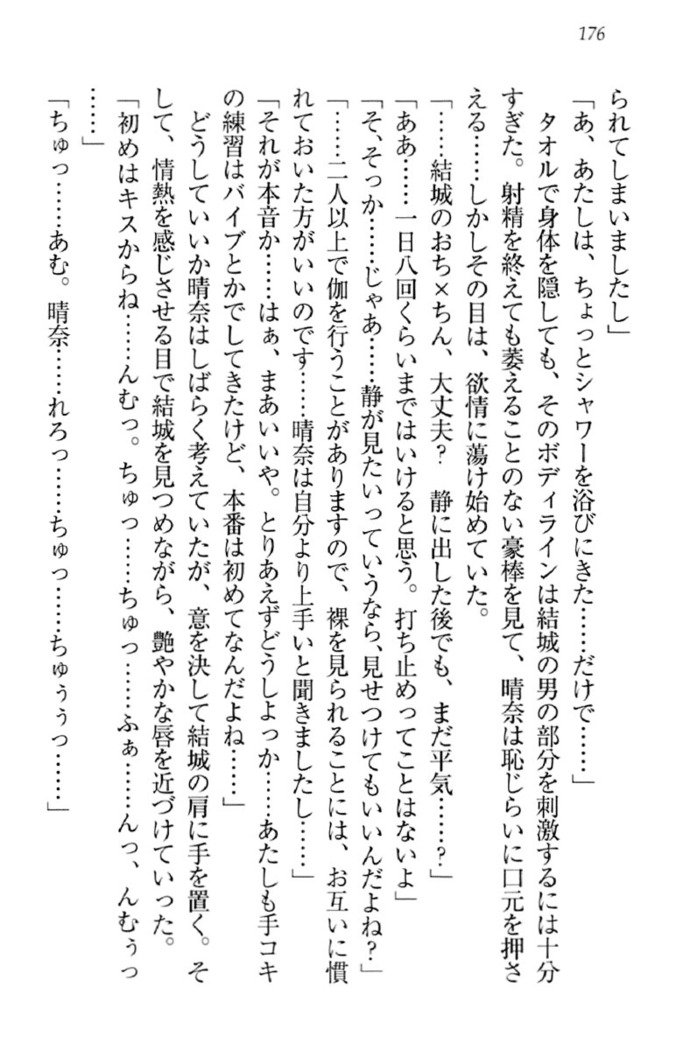 176
られてしまいましたし」
「あ、あたしは、ちょっとシャワーを浴びにきた……だけで……」
タオルで身体を隠しても、そのボディラインは結城の男の部分を刺激するには十分
すぎた。射精を終えても萎えることのない豪棒を見て、晴奈は恥じらいに口元を押さ
える……しかしその目は、欲情に蕩け始めていた。
「……結城のおち×ちん、大丈夫?　静に出した後でも、まだ平気……?」
「ああ……一日八回くらいまではいけると思う。打ち止めってことはないよ」
「そ、そっか……じゃあ……静が見たいっていうなら、見せつけてもいいんだよね?」
「……二人以上で伽を行うことがありますので、裸を見られることには、お互いに慣
れておいた方がいいのです……晴奈は自分より上手いと聞きましたし……」
「それが本音か……はぁ、まあいいや。とりあえずどうしよっか……あたしも手コキ
の練習はバイブとかでしてきたけど、本番は初めてなんだよね……」
どうしていいか晴奈はしばらく考えていたが、意を決して結城の肩に手を置く。そ
して、情熱を感じさせる目で結城を見つめながら、艶やかな唇を近づけていった。
「初めはキスからね……んむっ。ちゅっ……ちゅっ……ふぁ……んっ、んむぅっ
……」
「ちゅっ……あむ。晴奈……れろっ……ちゅっ……ちゅぅぅっ……」